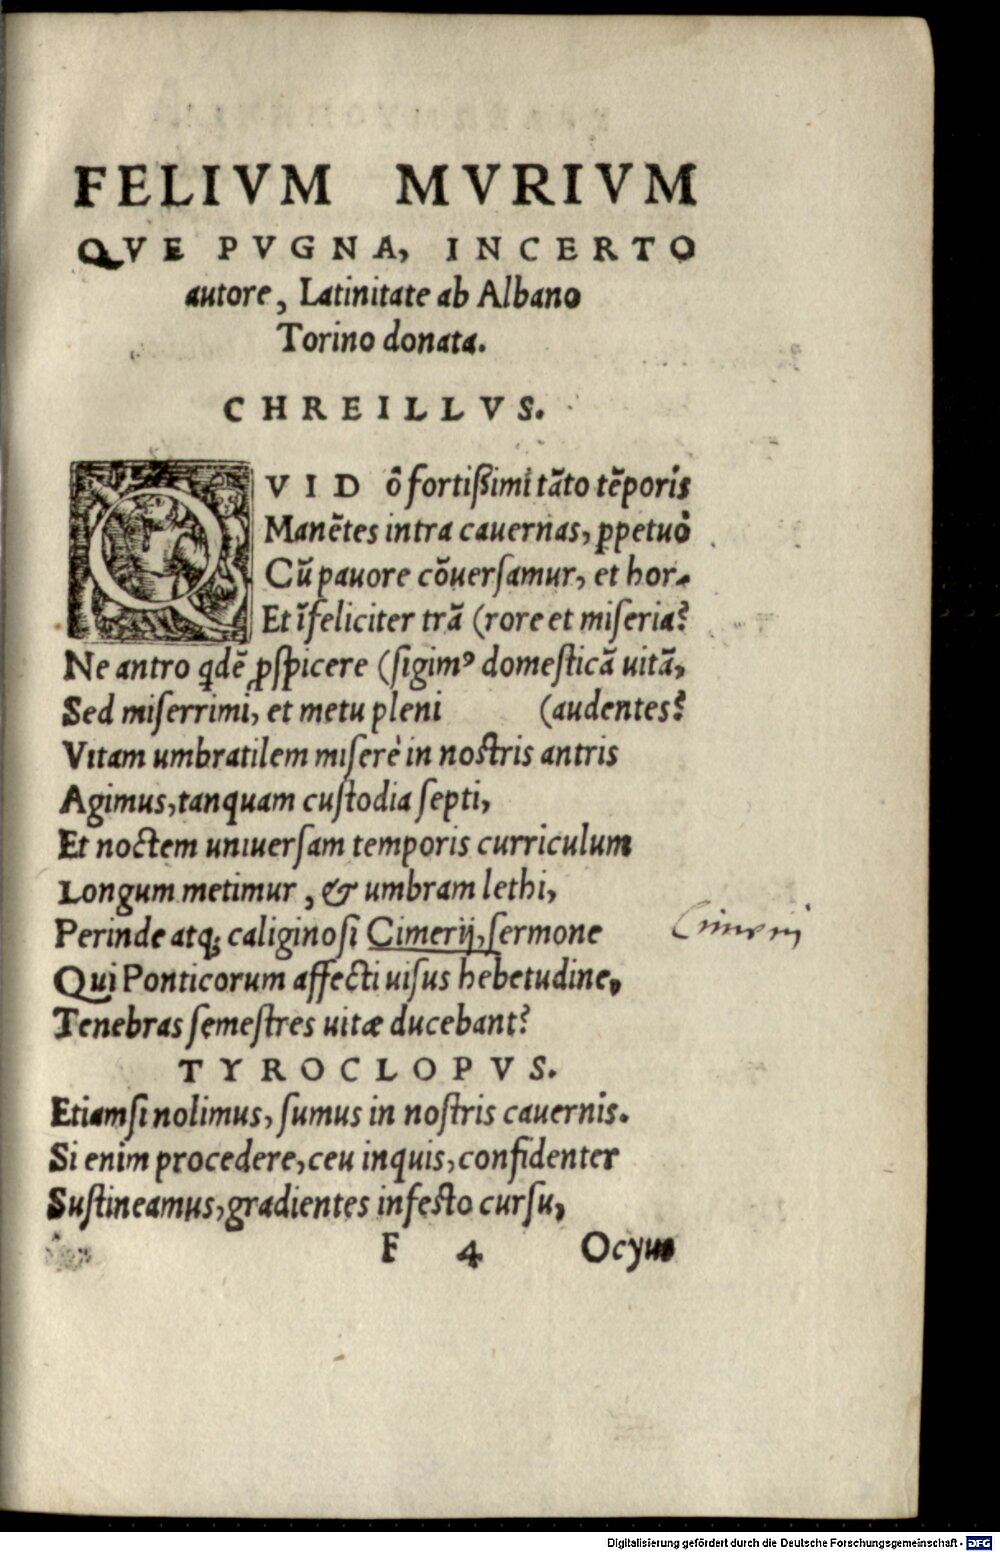 FELIVM MVRIVM
QVE PVGNA, INCERTO
autore, Latinitate ab Albano
Torino donata.
CHREILLVS.
QVID ô fortißimi tāto tēporis
Manētes intra cauernas, ꝑpetuò
Cū pauore cōuersamur, et hor-
Et īfeliciter trā (rore et miseria?
Ne antro qdē ꝓspicere (sigimꝰ domesticā uitā,
Sed miserrimi, et metu pleni (audentes?
Vitam umbratilem miserè in nostris antris
Agimus, tanquam custodia septi,
Et noctem uniuersam temporis curriculum
Longum metimur, & umbram lethi,
Perinde atq; caliginosi Cimerij, sermone Cimerij
Qui Ponticorum affecti uisus hebetudine,
Tenebras semestres uitæ ducebant?
TYROCLOPVS.
Etiamsi nolimus, sumus in nostris cauernis.
Si enim procedere, ceu inquis, confidenter
Sustineamus, gradientes infesto cursu,
F 4 Ocyus
Digitalisierung gefördert durch die Deutsche Forschungsgemeinschaft - DFG